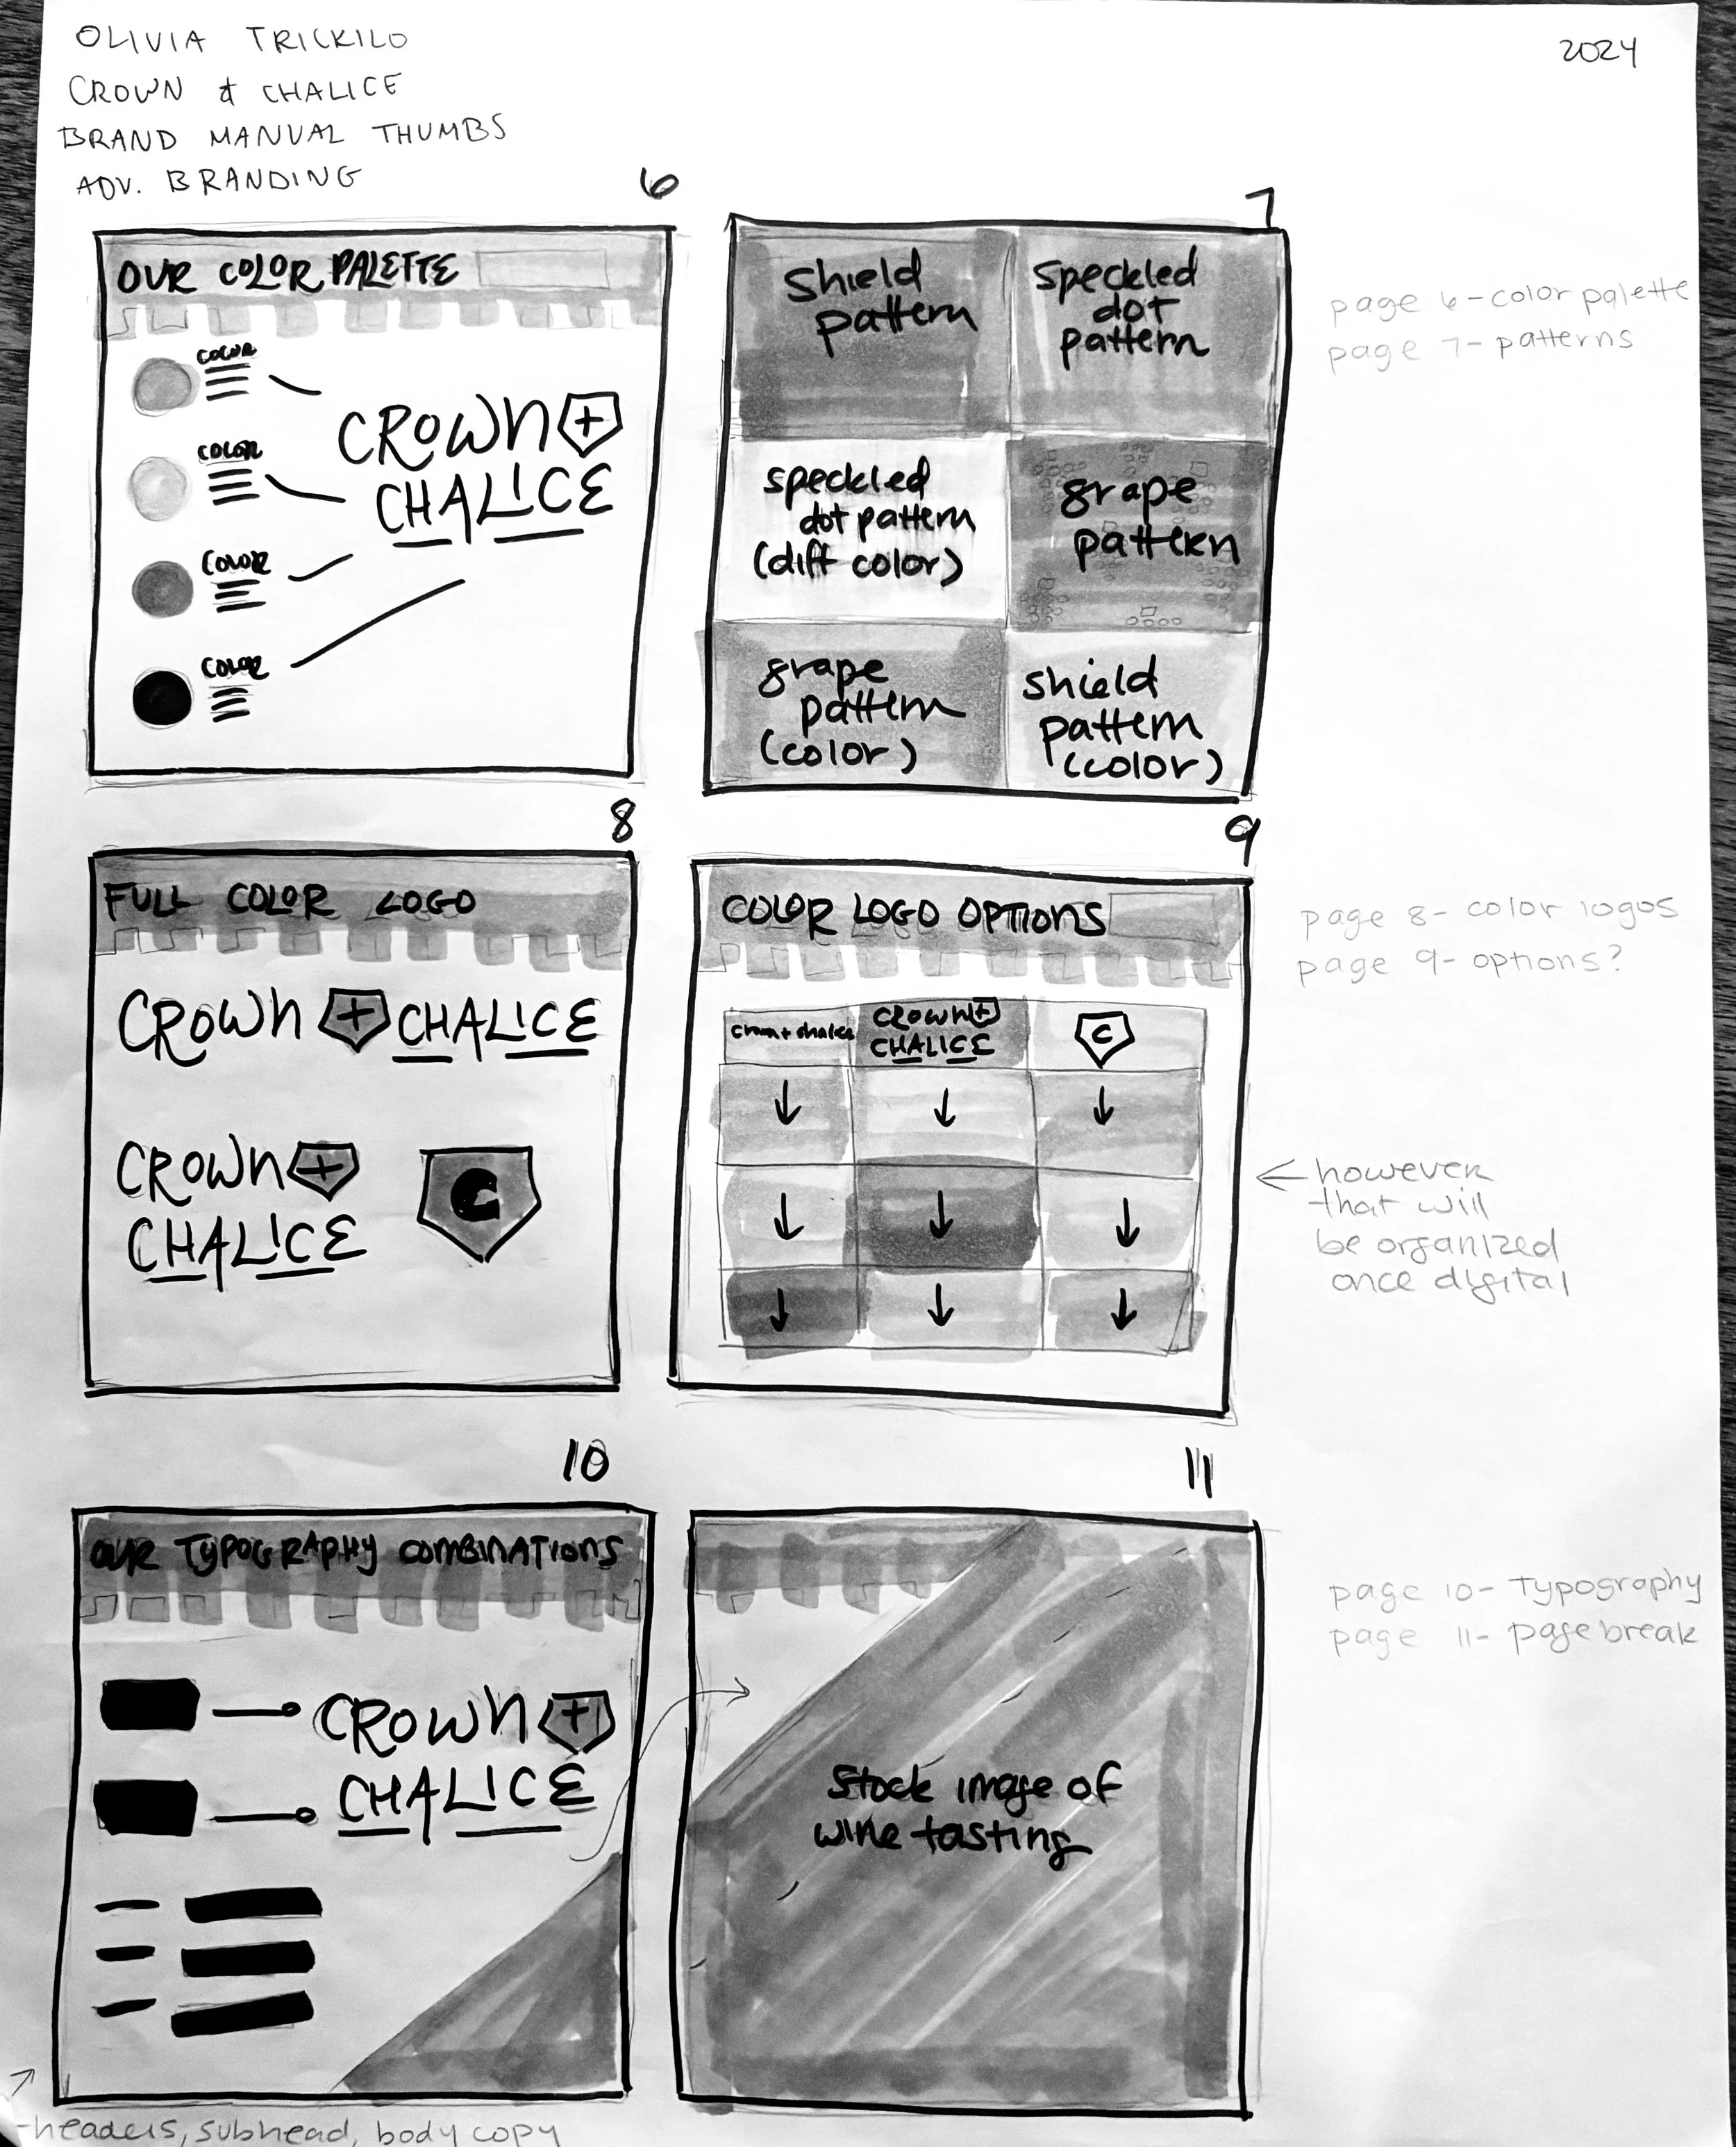 OLIVIA TRICKILO
CROWN & CHALICE
BRAND MANUAL THUMBS
ADV. BRANDING
2024
6
OUR COLOR PALETTE
COLOR
COLOR
COLOR
COLOR
CROWN +
CHALICE
7
Shield
pattern
Speckled
dot
pattern
speckled
dot pattern
(diff color)
grape
pattern
grape
pattern
(color)
shield
pattern
(color)
page 6 - color palette
page 7 - patterns
8
FULL COLOR LOGO
CROWN + CHALICE
CROWN +
CHALICE
C
9
COLOR LOGO OPTIONS
Crown + chalice
CROWN +
CHALICE
C
page 8 - color logos
page 9 - options?
← however
that will
be organized
once digital
10
OUR TYPOGRAPHY COMBINATIONS
CROWN +
CHALICE
11
Stock image of
wine tasting
page 10 - Typography
page 11 - page break
- headers, subhead, body copy